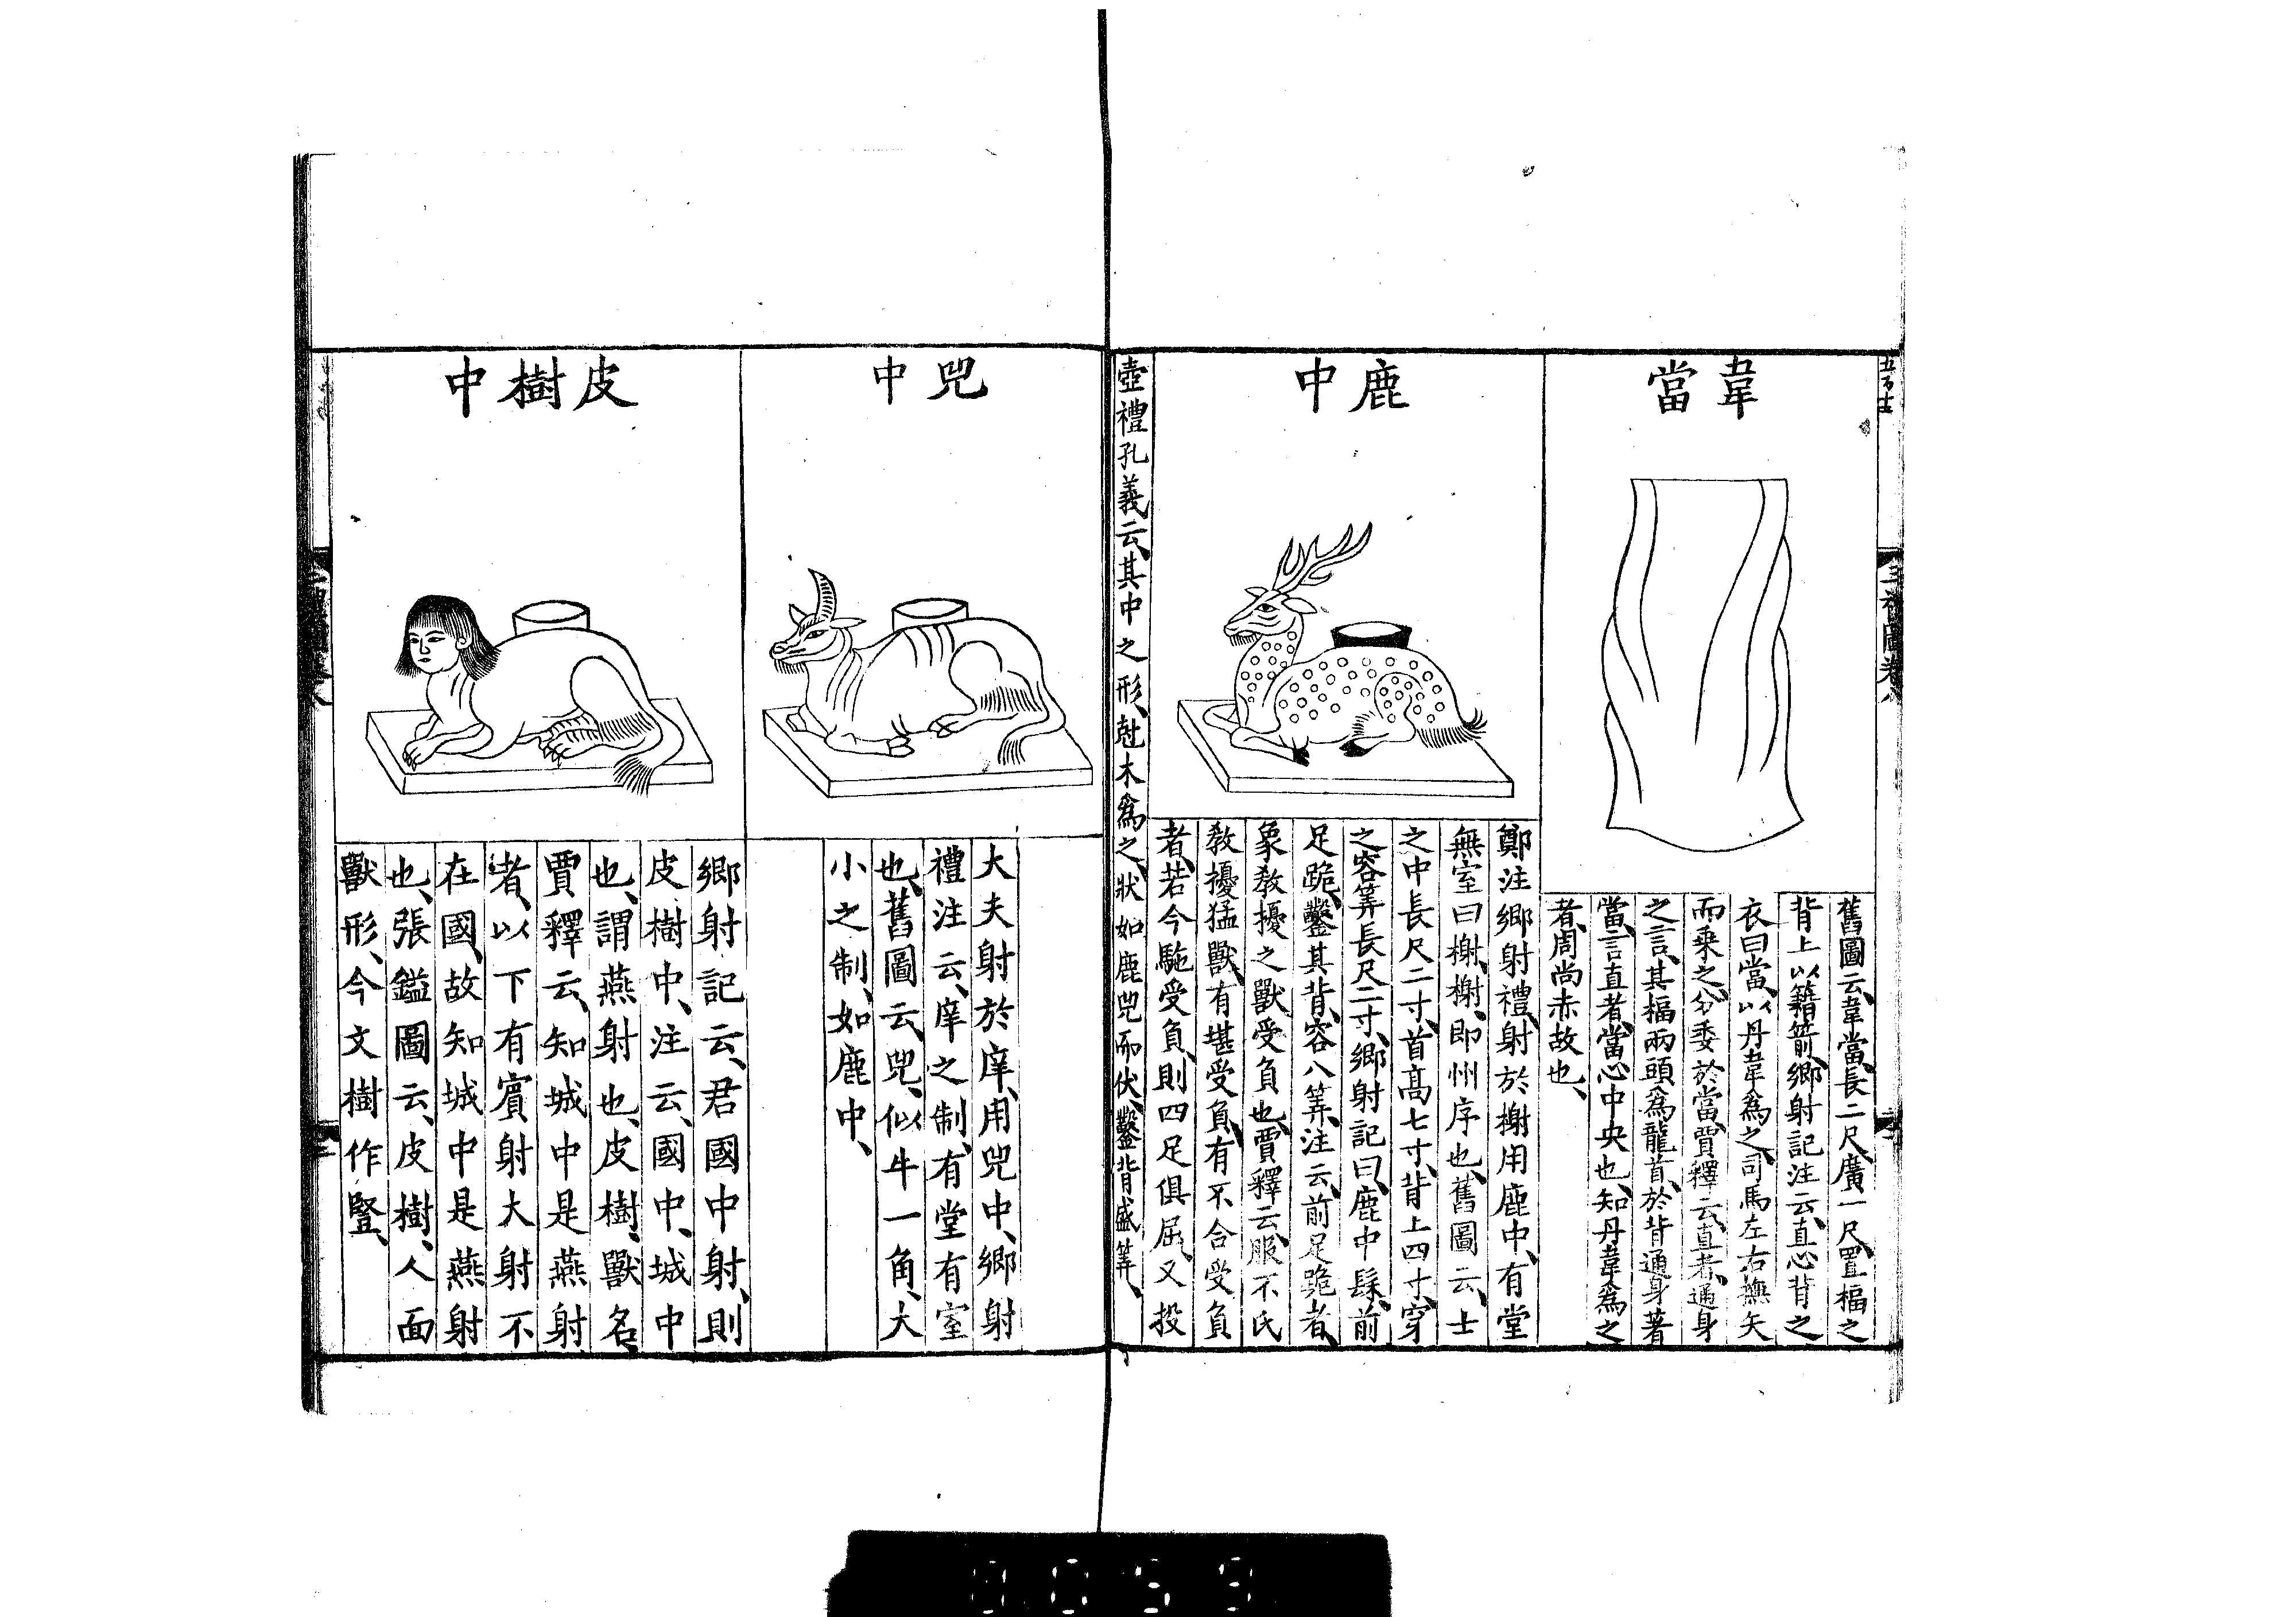 韋當
舊圖云、韋當、長二尺、廣一尺、置楅之
背上以籍箭、鄉射記注云、直心背之
衣曰當、以丹韋為之、司馬左右撫矢
而乘之、分委於當、賈釋云、直者、通身
之言、其楅兩頭為龍首、於背通身著
當、言直者、當心中央也、知丹韋為之
者、周尚赤故也、
鹿中
鄭注鄉射禮、射於榭用鹿中、有堂
無室曰榭、榭、即州序也、舊圖云、士
之中長尺二寸、首高七寸、背上四寸、穿
之容筭長尺二寸、鄉射記曰、鹿中髹、前
足跪、鑿其背、容八筭、注云、前足跪者、
象敎擾之獸受負也、賈釋云、服不氏
敎擾猛獸、有堪受負、有不合受負
者、若今駞受負、則四足俱屈、又投
壺禮孔義云、其中之形、尅木為之、狀如鹿兕而伏、鑿背盛筭、
兕中
大夫射於庠、用兕中、鄉射
禮注云、庠之制、有堂有室
也、舊圖云、兕、似牛一角、大
小之制、如鹿中、
皮樹中
鄉射記云、君國中射、則
皮樹中、注云、國中、城中
也、謂燕射也、皮樹、獸名、
賈釋云、知城中是燕射
者、以下有賓射大射不
在國、故知城中是燕射
也、張鎰圖云、皮樹、人面
獸形、今文樹作豎、